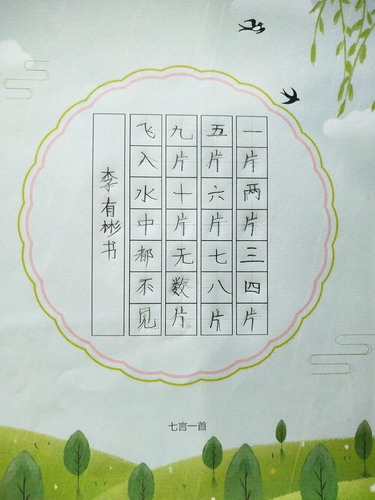 一片两片三四片
五片六片七八片
九片十片无数片
飞入水中都不见
李有彬书
七言一首